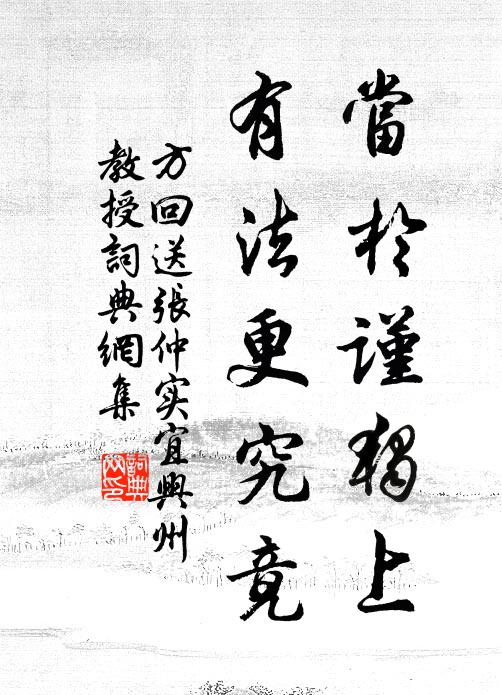 當於謹獨上
有法更究竟
方回送張仲实宜興州
教授詞典網集
詞典網印